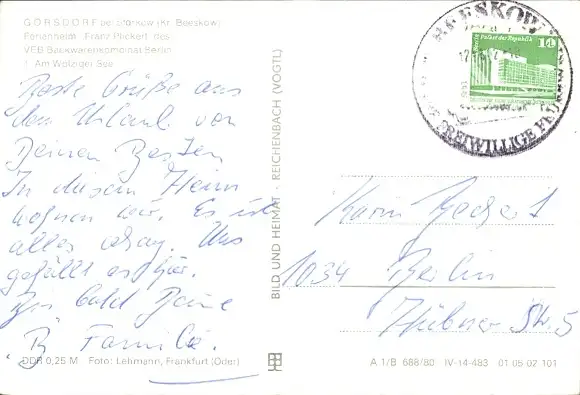 GÖRSDORF bei Storkow (Kr. Beeskow)
Ferienheim "Franz Plickert" des
VEB Baukwarenkombinat Berlin
1 Am Wolziger See
Beste Grüße aus
dem Urlaub von
Deinen Besten
In diesem Heim
wohnen wir. Es ist
alles okay. Uns
gefällt es hier.
Bis bald Deine
Familie.
DDR 0,25 M Foto: Lehmann, Frankfurt (Oder)
BILD UND HEIMAT · REICHENBACH (VOGTL)
BEESKOW
FREIWILLIGE
Palast der Republik
10
Karin
1034 Berlin
Hübner Str. 5
A 1/B 688/80 IV-14-483 01 05 02 101